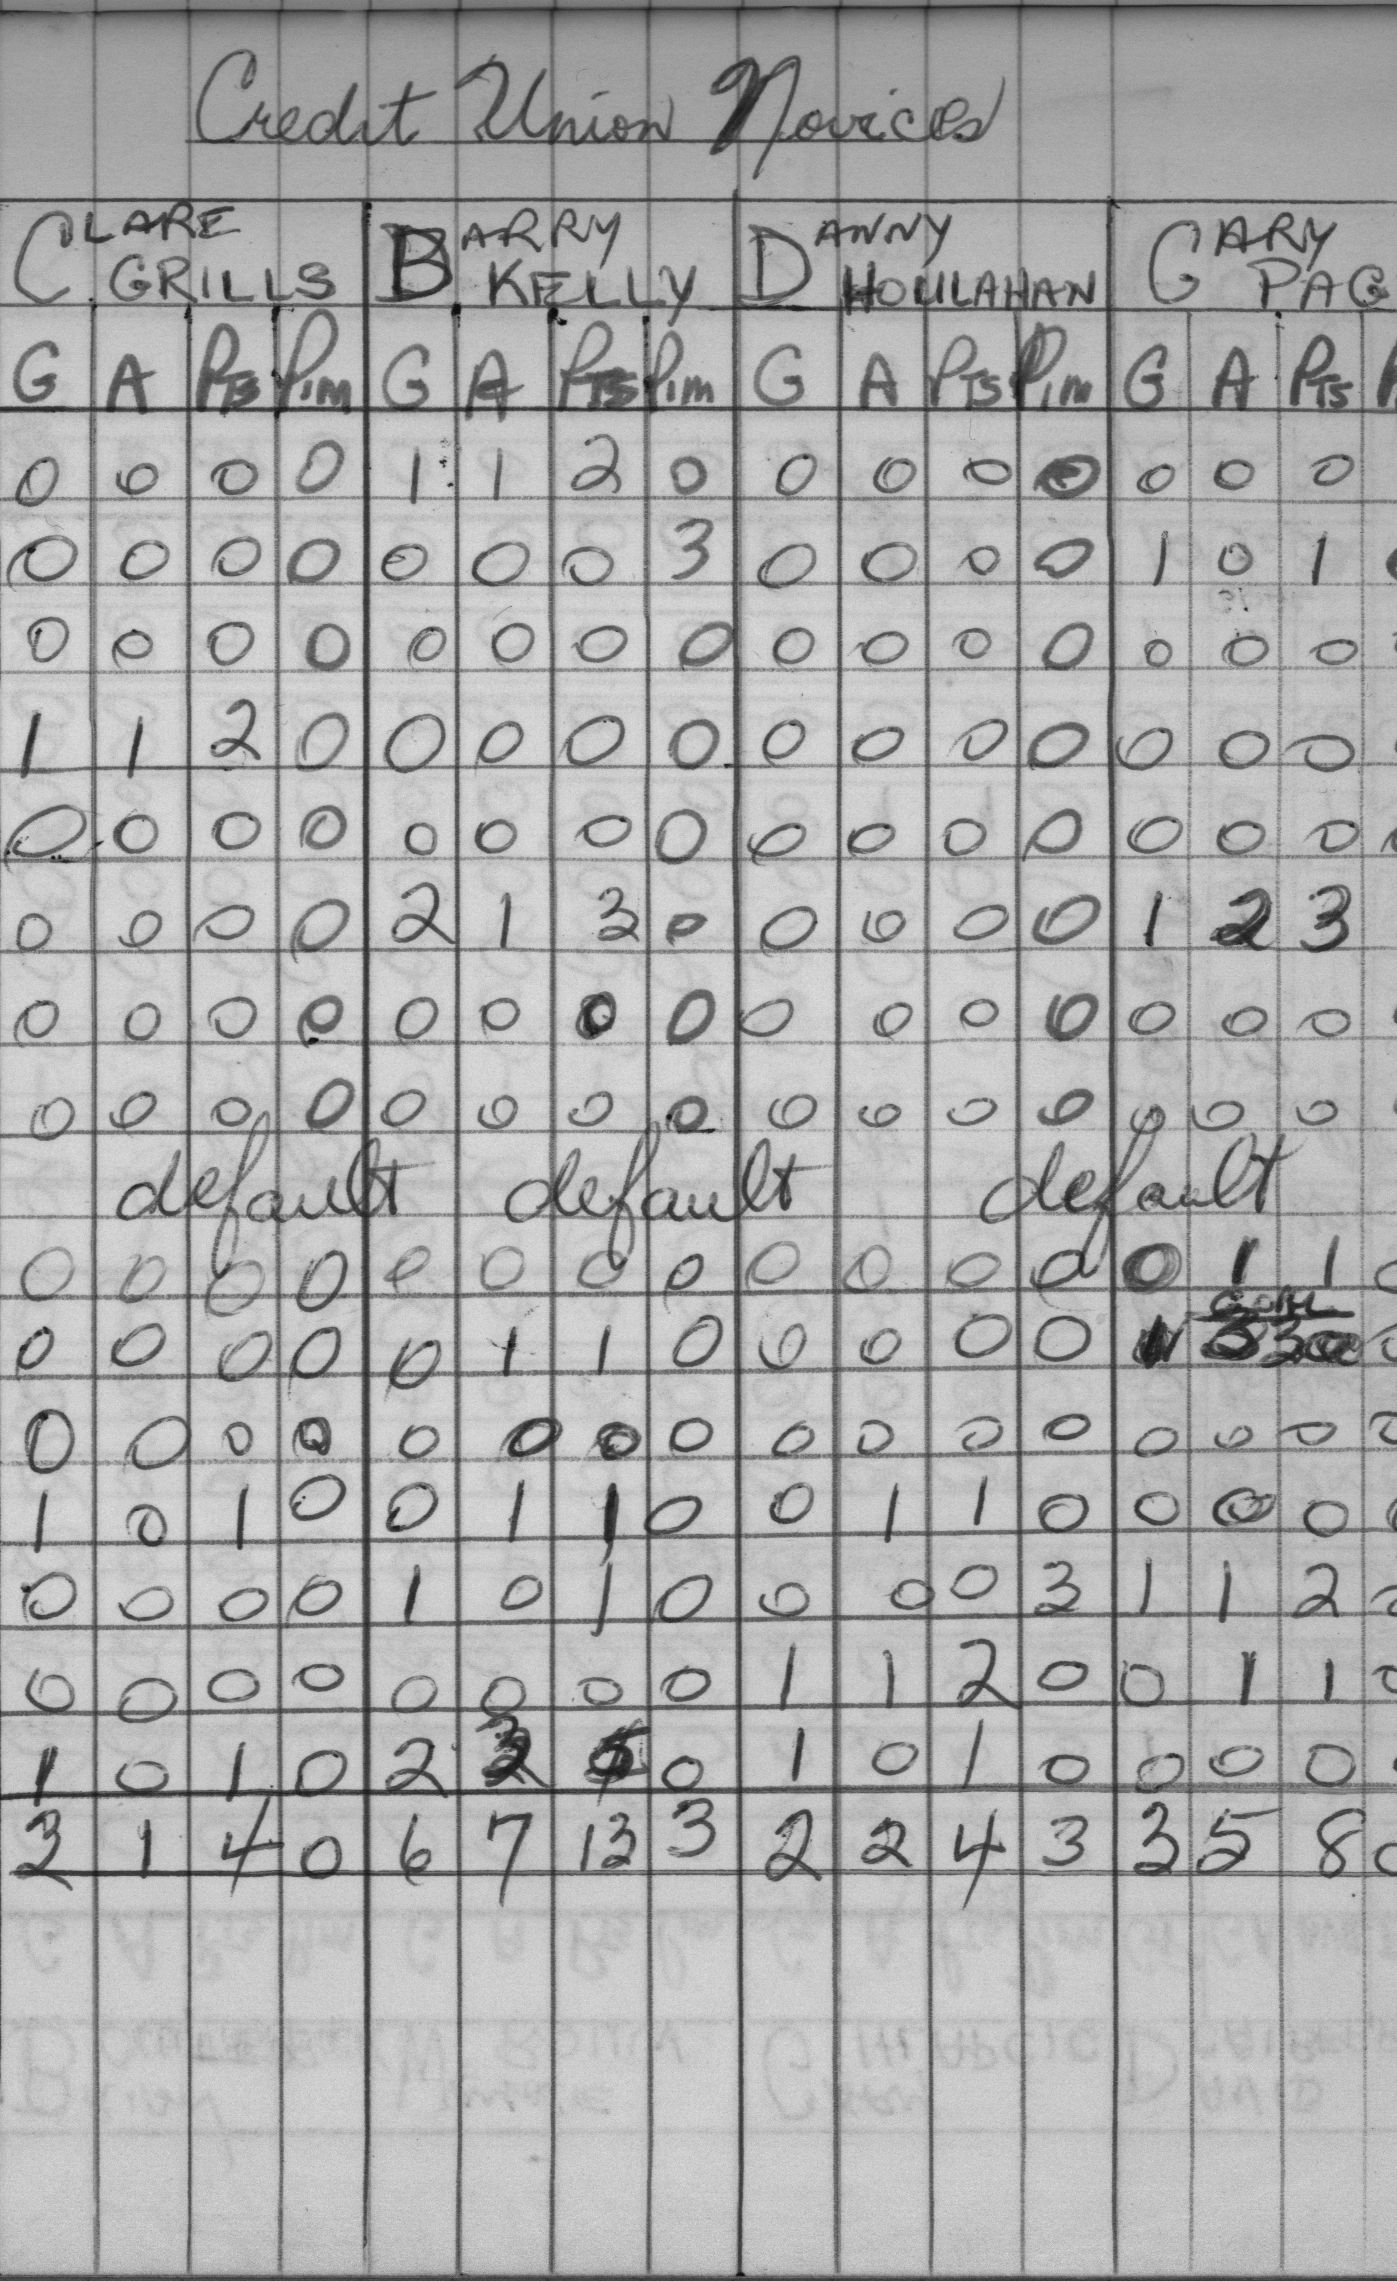 Credit Union Novices
CLARE GRILLS BARRY KELLY DANNY HOULAHAN GARY PAG
G A Pts Pim G A Pts Pim G A Pts Pim G A Pts
0 0 0 0 1 1 2 0 0 0 0 0 0 0 0
0 0 0 0 0 0 0 3 0 0 0 0 1 0 1
0 0 0 0 0 0 0 0 0 0 0 0 0 0 0
1 1 2 0 0 0 0 0 0 0 0 0 0 0 0
0 0 0 0 0 0 0 0 0 0 0 0 0 0 0
0 0 0 0 2 1 3 0 0 0 0 0 1 2 3
0 0 0 0 0 0 0 0 0 0 0 0 0 0 0
0 0 0 0 0 0 0 0 0 0 0 0 0 0 0
default default default
0 0 0 0 0 0 0 0 0 0 0 0 0 1 1 0
0 0 0 0 0 1 1 0 0 0 0 0 GOAL
0 0 0 0 0 0 0 0 0 0 0 0 0 0 0 0
1 0 1 0 0 1 1 0 0 1 1 0 0 0 0
0 0 0 0 1 0 1 0 0 0 0 3 1 1 2 0
0 0 0 0 0 0 0 0 1 1 2 0 0 1 1 0
1 0 1 0 2 3 5 0 1 0 1 0 0 0 0
3 1 4 0 6 7 13 3 2 2 4 3 3 5 8 0